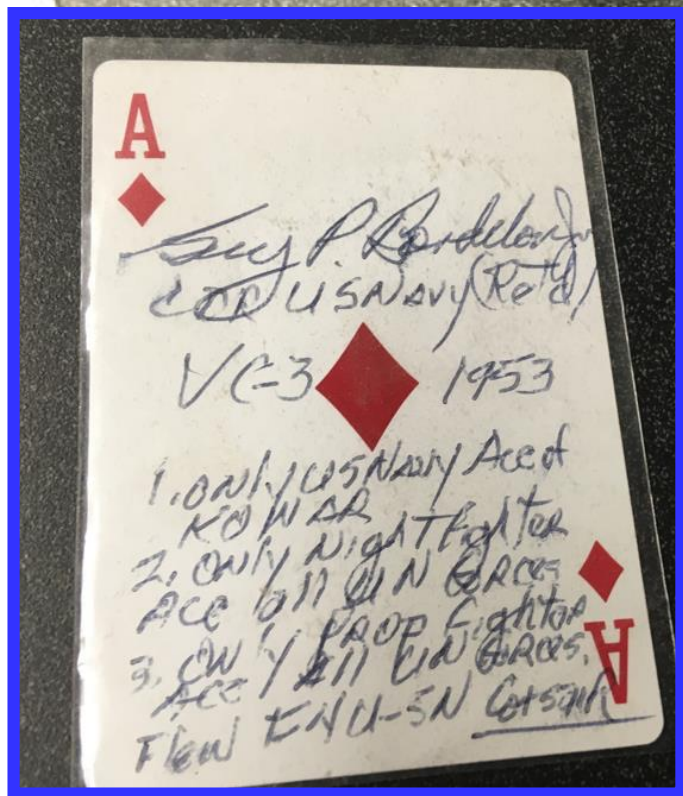 A
Guy P. Bordelon Jr
CDR US Navy (Ret'd)
VC-3 1953
1. ONLY US NAVY Ace of
KO WAR
2. ONLY Night Fighter
Ace all UN Forces
3. ONLY PROP Fighter
Ace / All UN Forces.
Flew F4U-5N Corsair
A